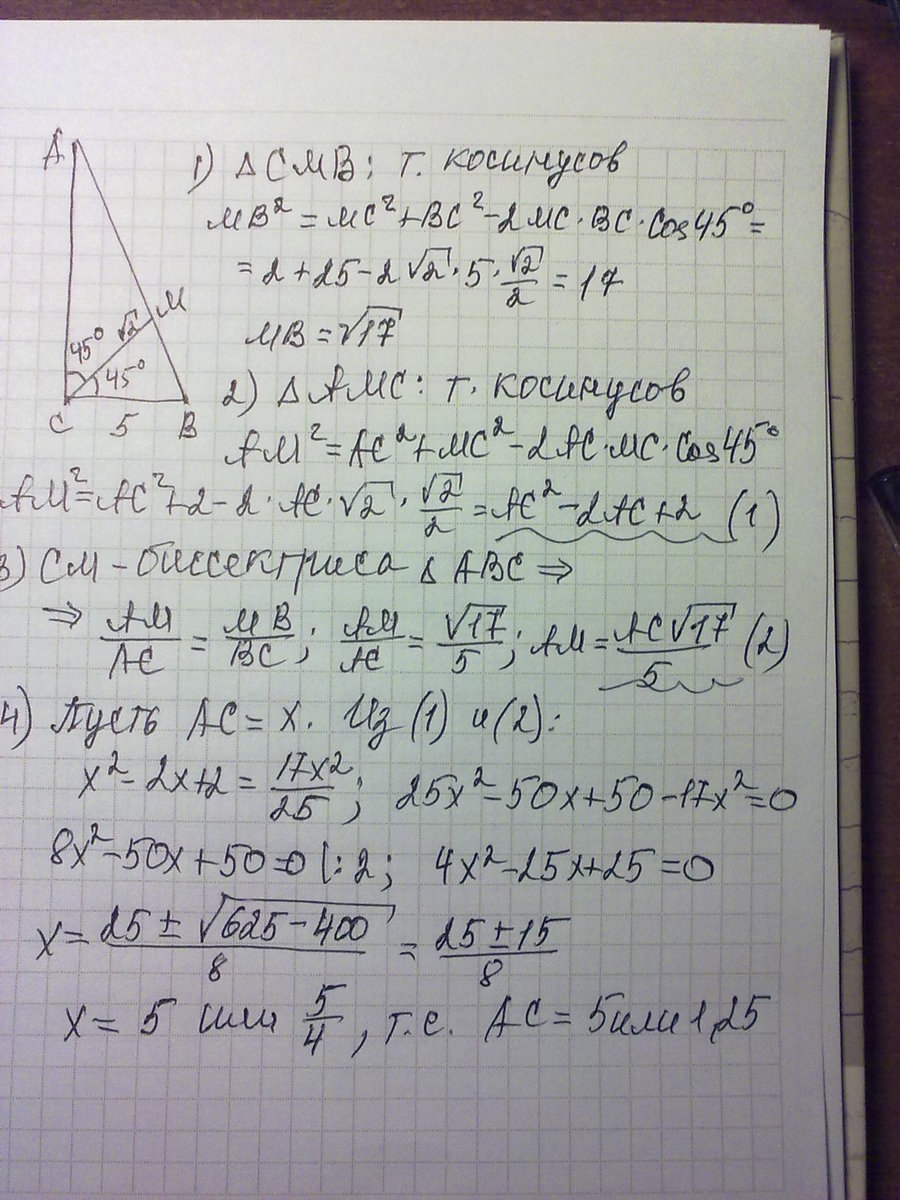 A
M
√2
45°
45°
C 5 B
1) Δ CMB: т. косинусов
MB² = MC² + BC² - 2MC · BC · cos45° =
= 2 + 25 - 2√2 · 5 · √2/2 = 17
MB = √17
2) Δ AMC: т. косинусов
AM² = AC² + MC² - 2AC · MC · cos45°
AM² = AC² + 2 - 2 · AC · √2 · √2/2 = AC² - 2AC + 2 (1)
3) CM - биссектриса Δ ABC ⇒
⇒ AM/AC = MB/BC; AM/AC = √17/5; AM = AC√17/5 (2)
4) Пусть AC = x. Из (1) и (2):
x² - 2x + 2 = 17x²/25; 25x² - 50x + 50 - 17x² = 0
8x² - 50x + 50 = 0 |: 2; 4x² - 25x + 25 = 0
x = (25 ± √(625 - 400))/8 = (25 ± 15)/8
x = 5 или 5/4, т.е. AC = 5 или 1,25